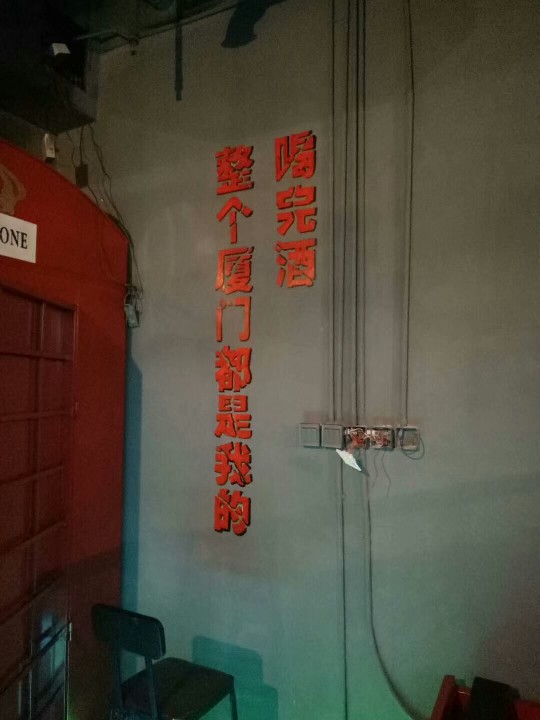 喝完酒
整个厦门都是我的
ONE